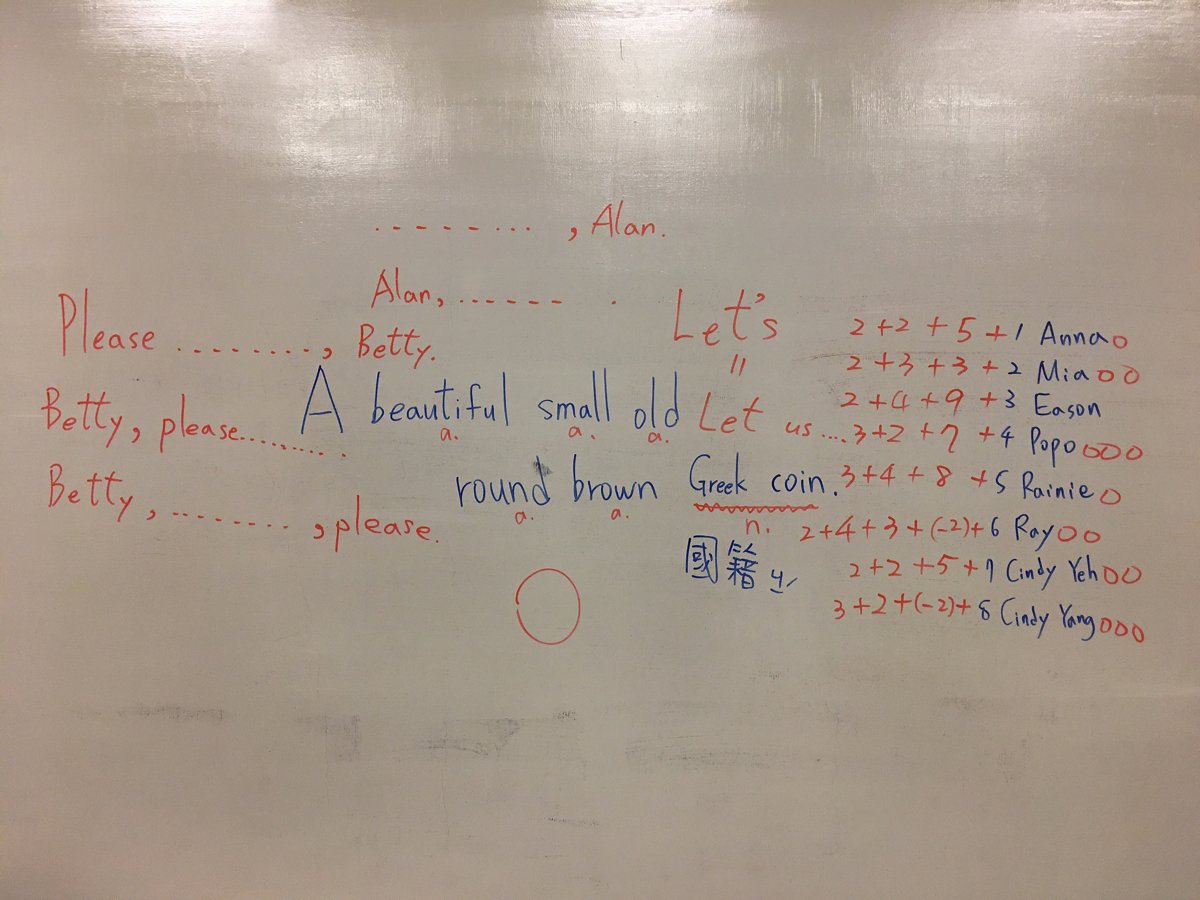 - - - - - - - - - , Alan.
Alan, - - - - - - .
Please - - - - - - - - , Betty.
Betty, please.........
Betty, - - - - - - - - , please.
A beautiful small old
a. a. a.
round brown Greek coin.
a. a. n.
國籍
Let's
=
Let us ....
2+2+5+1 Anna O
2+3+3+2 Mia O O
2+4+9+3 Eason
3+2+7+4 Popo O O O
3+4+8+5 Rainie O
2+4+3+(-2)+6 Ray O O
2+2+5+7 Cindy Yeh O O
3+2+(-2)+8 Cindy Yang O O O